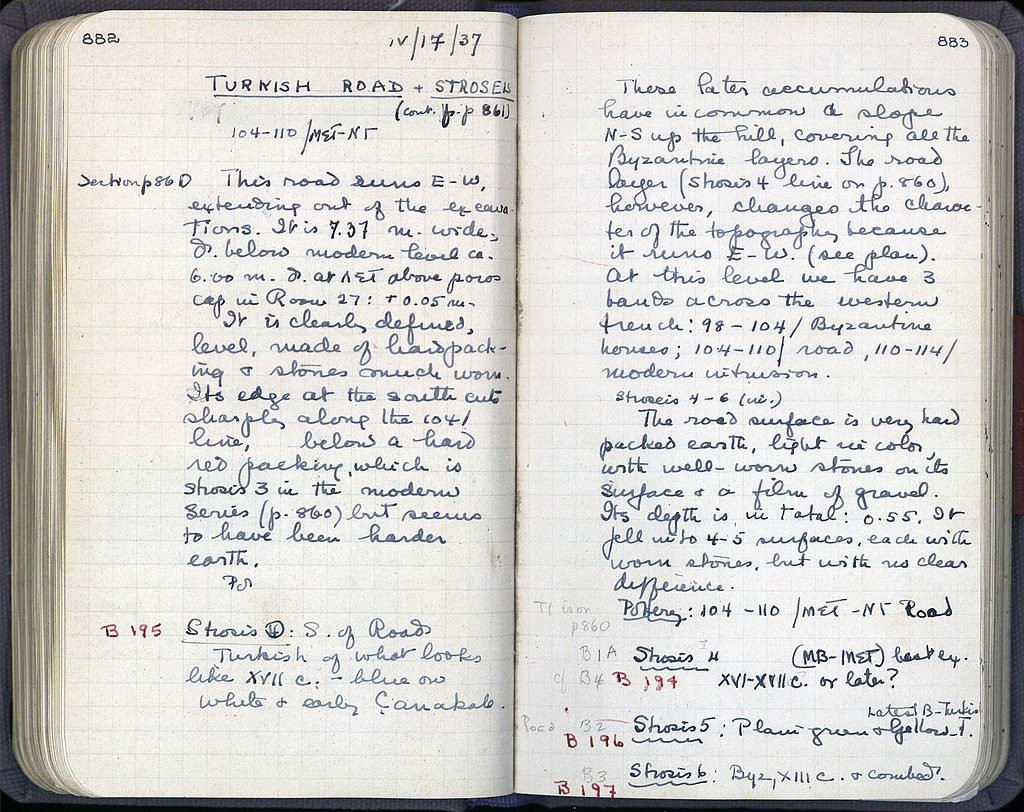 882
IV/17/37
TURKISH ROAD + STROSEIS
(cont. fr. p 861)
104-110 /ΜΕΤ-ΝΤ
Section p 860 This road runs E-W,
extending out of the excava-
tions. It is 7.37 m. wide,
D. below modern level ca.
6.00 m. D. at ΛΕΤ above poros
cap in Room 27: + 0.05 m.
It is clearly defined,
level, made of hard pack-
ing & stones much worn.
Its edge at the south cuts
sharply along the 104/
line, below a hard
red packing, which is
strosis 3 in the modern
series (p. 860) but seems
to have been harder
earth.
Pot
B 195 Strosis 4: S. of Road
Turkish of what looks
like XVII c. - blue on
white & early Çanakale.
883
These later accumulations
have in common a slope
N-S up the hill, covering all the
Byzantine layers. The road
layer (strosis 4 line on p. 860),
however, changes the charac-
ter of the topography because
it runs E-W. (see plan).
At this level we have 3
bands across the western
trench: 98-104/ Byzantine
houses; 104-110/ road, 110-114/
modern intrusion.
Stroseis 4-6 (in.)
The road surface is very hard
packed earth, light in color,
with well-worn stones on its
surface & a film of gravel.
Its depth is in total: 0.55. It
fell into 4-5 surfaces, each with
worn stones, but with no clear
difference.
Pottery: 104-110 /ΜΕΤ-ΝΤ Road
p860
B1A Strosis 4 (MB-MET)
cf B4 B 194 XVI-XVII c. or later?
Latest B-Turkis
Road B2 Strosis 5: Plain green & Yellow T.
B 196
B3 Strosis 6: Byz, XIII c. & combed.
B 197